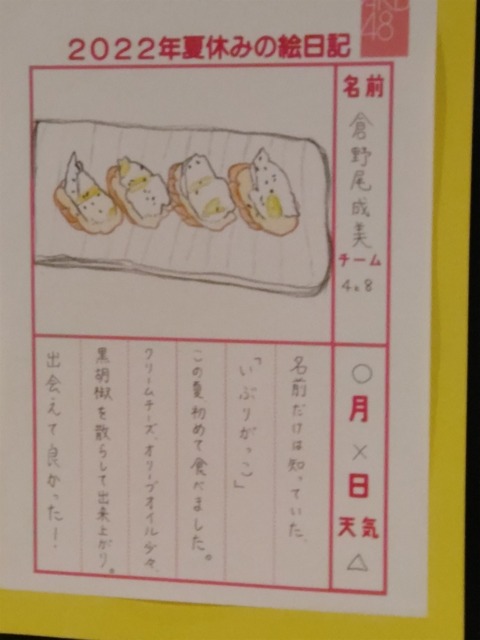 AKB
48
2022年夏休みの絵日記
名前
倉野尾成美
チーム
4. 8
○月×日
天気
△
名前だけは知っていた、
「いぶりがっこ」
この夏、初めて食べました。
クリームチーズ、オリーブオイル少々、
黒胡椒を散らして出来上がり。
出会えて良かったー!